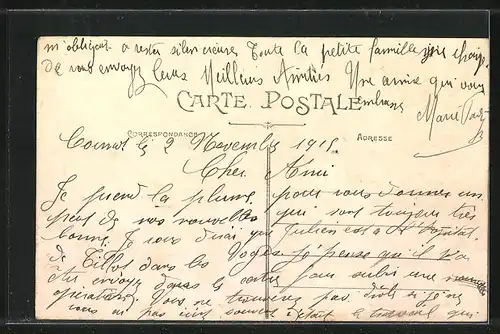 m'obligeant a rester silencieuse Toute la petite famille
de vous envoyer leurs Meilleurs Amitiés Une amie qui vous
embrasse
Marie
CARTE POSTALE
CORRESPONDANCE
ADRESSE
le 2 Novembre 1915
Cher Ami
Je prend la plume pour vous donner un
peut de nos nouvelles qui sont toujours très
bonne Je vous dirai que Julien est a l'Hopital
de Tillot dans les Vosges Je pense qu'il va
être envoyé dans le pour subir une
opération Vous ne trouverez pas
vous ai pas écrit souvent le travail qui